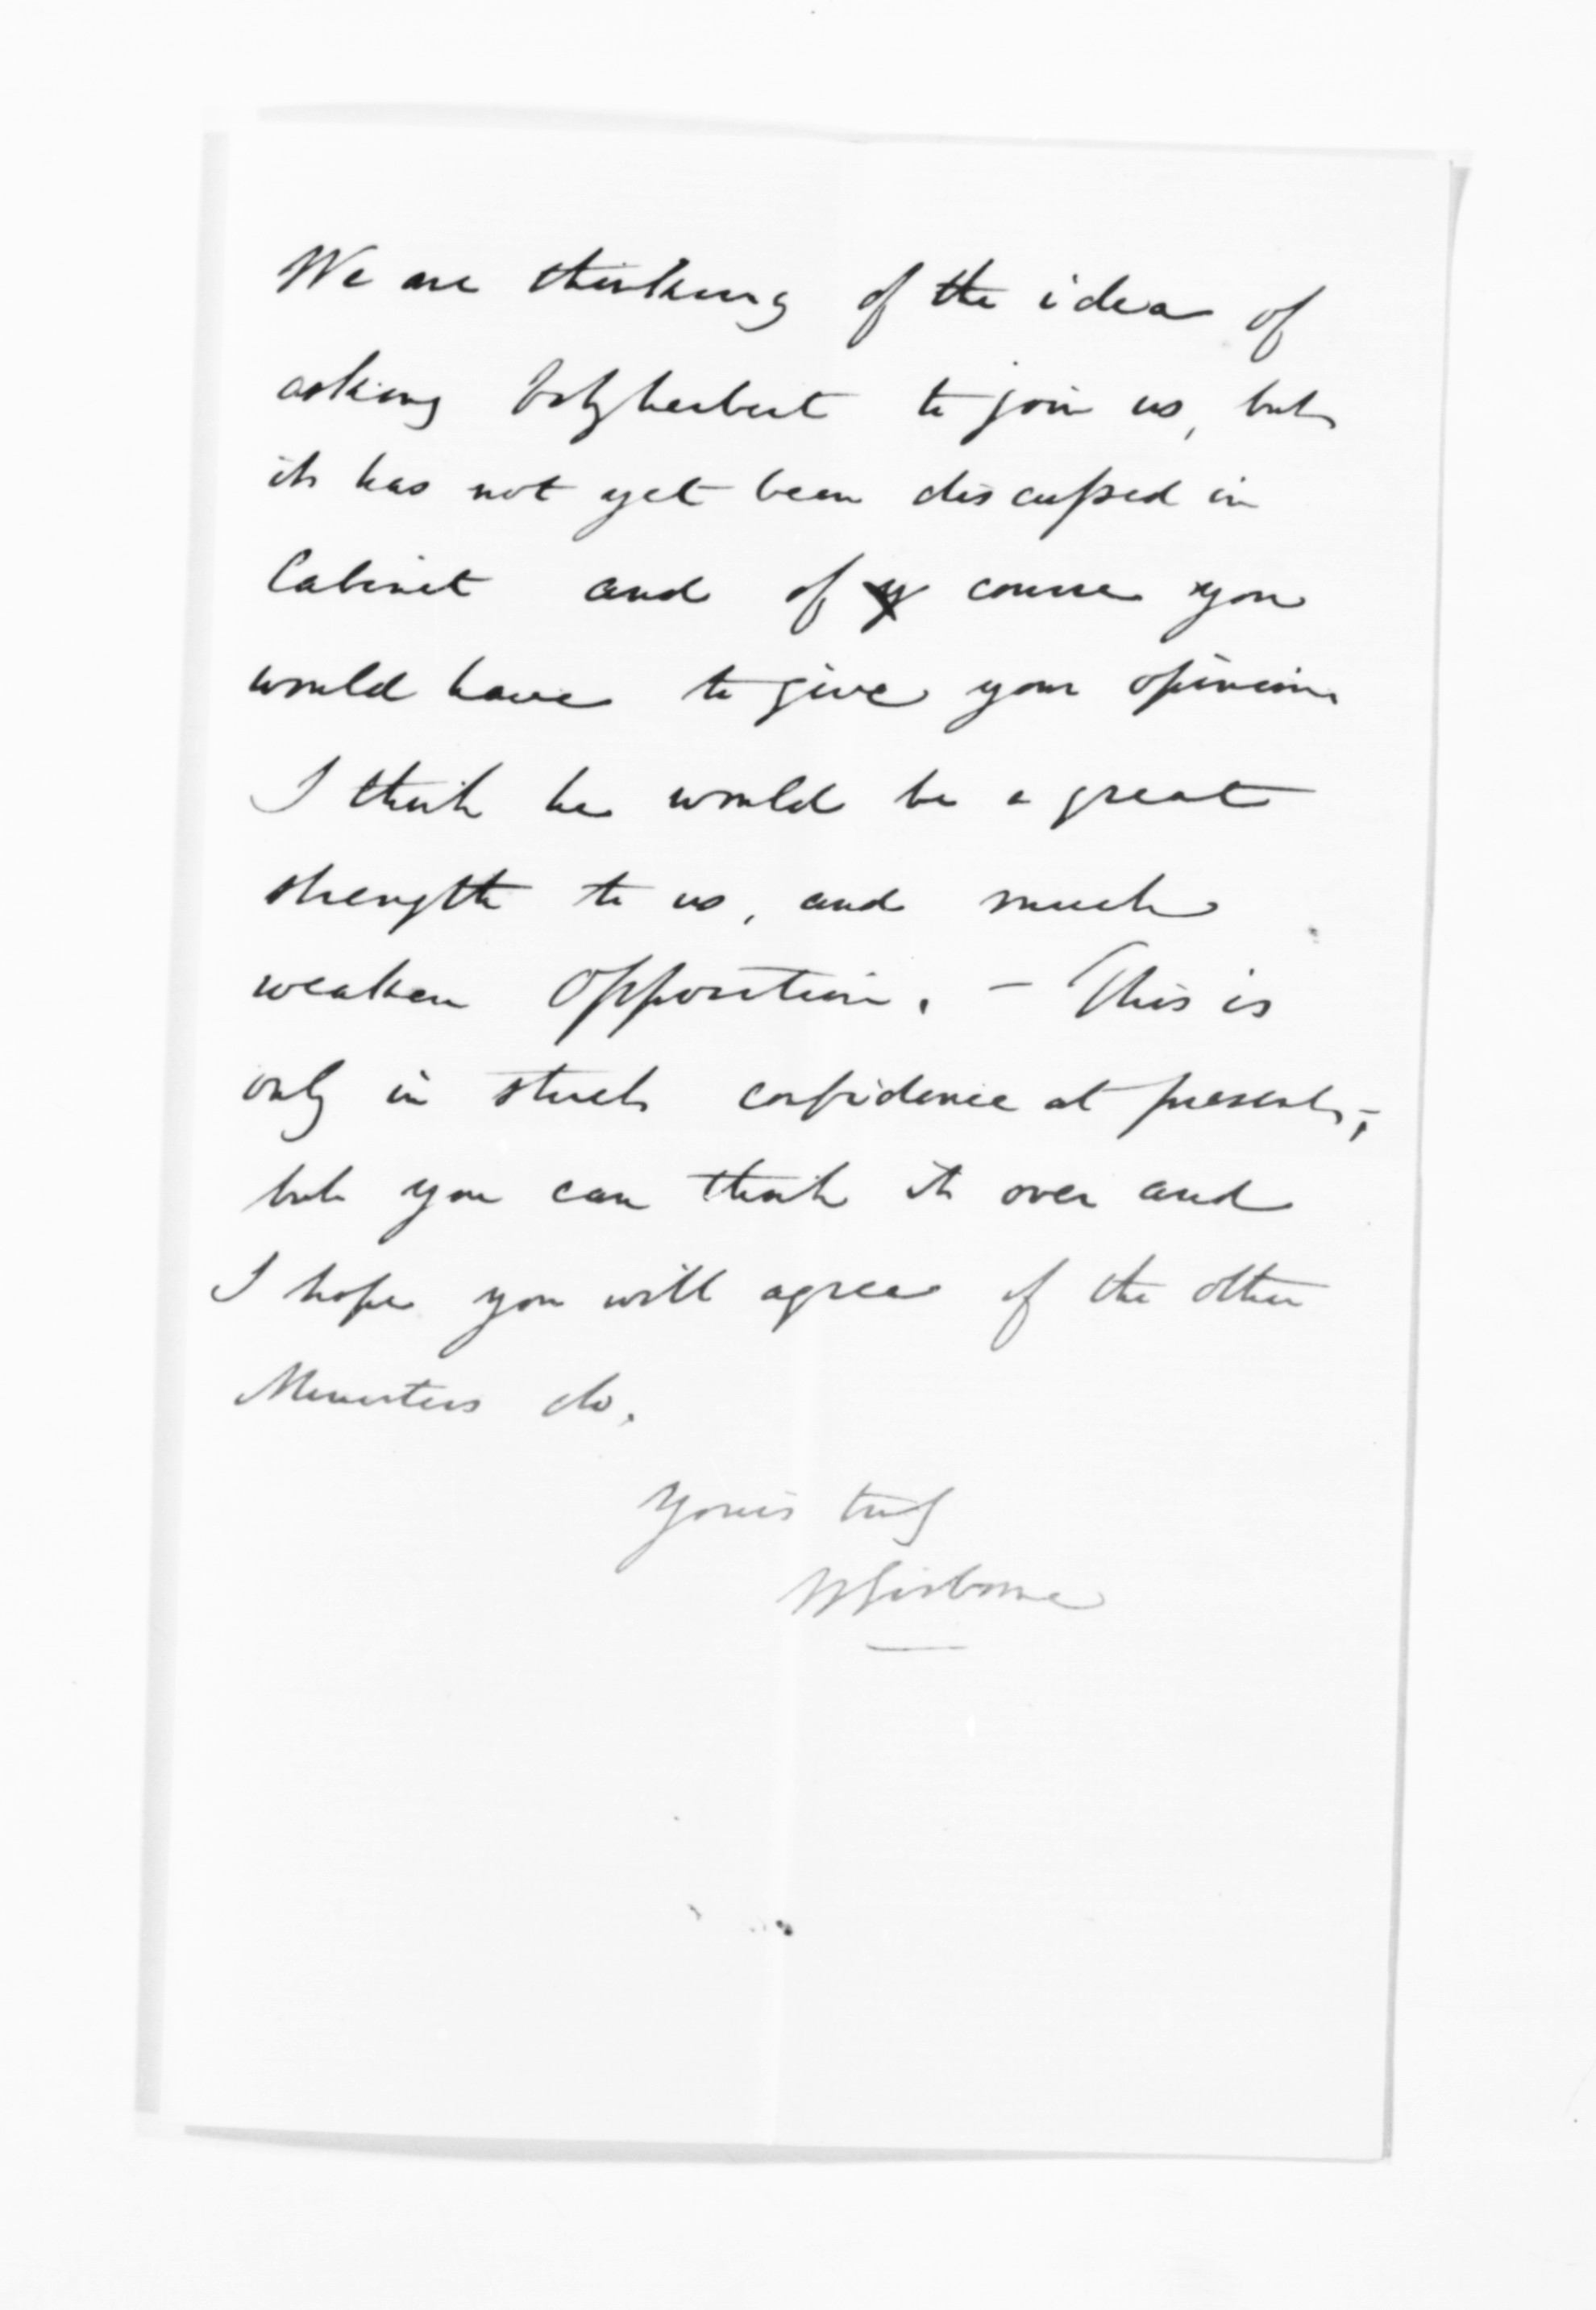 We are thinking of the idea of
asking Fitzherbert to join us, but
it has not yet been discussed in
Cabinet and of y course you
would have to give your opinion
I think he would be a great
strength to us, and much
weaken Opposition. - This is
only in strict confidence at present, -
but you can think it over and
I hope you will agree if the other
Ministers do.
Yours truly
WGisborne